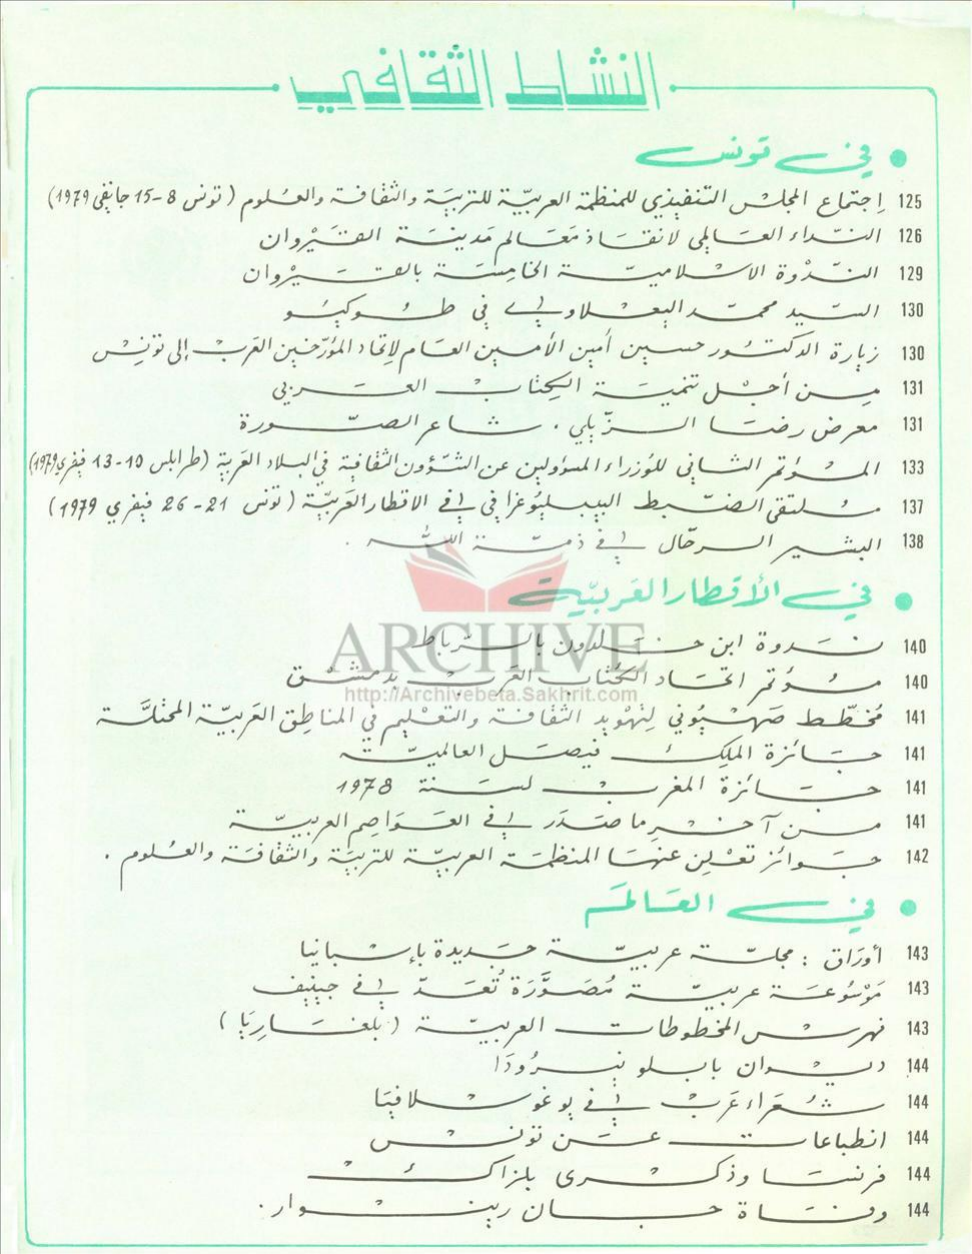 النشاط الثقافي
في تونس
125 إجتماع المجلس التنفيذي للمنظمة العربيّة للتربيَة والثقافة والعُلوم (تونس 8-15 جانفي 1979)
126 النّداء العَالمي لانقاذ مَعَالم مَدينَة القيْروان
129 النّدْوة الاسْلاميّة الخامِسَة بالقيْروان
130 السّيد محمّد اليعْلاوي في طُوكيُو
130 زيارة الدكتُور حسين أمين الأمين العَام لإتحاد المؤرّخين العَربْ إلى تونِسْ
131 مِن أجْل تنميَة الكِتابْ العَربي
131 معرض رضَا الزّيلي . شاعر الصّورة
133 المُؤتمر الثاني للوُزراء المسؤولين عن الشؤون الثقافية في البلاد العربية (طرابلس 10-13 فيفري 1979)
137 مُلتقى الضّبط البيبليُوغرافي في الاقطار العَربيّة (تونس 21-26 فيفري 1979)
138 البشير الرحّال في ذمّة اللّه .
في الأقطار العَربيّة
ARCHIVE
http://Archivebeta.Sakhrit.com
140 نَدوة ابن خَلدون بالرّباط
140 مُؤتمر اتحَاد الكُتاب العَربْ بدمشْق
141 مُخطّط صَهْيُوني لِتهْويد الثقافة والتعْليم في المناطِق العَربيّة المحتلَّة
141 جَائزة الملِكْ فيصَل العالميّة
141 جَائزة المغربْ لسَنة 1978
141 مِن آخْر ما صَدَر في العَوَاصِم العربيّة
142 جَوائز تعْلِن عنهَا المنظمَة العربيّة للتربيَّة والثقافَة والعُلوم .
في العَالمَ
143 أورَاق : مجلّة عربيّة جَديدة بإسْبانيا
143 مَوْسُوعَة عربيّة مُصَوَّرَة تُعَدّ في جينيف
143 فهرسْ المخطوطات العربيّة (بلغَاريَا)
144 ديوان بابلو نيرُودَا
144 شُعَراء عَربْ في يوغوسلافيَا
144 انطباعات عَن تونسْ
144 فرنسَا وذكْرى بلزاكْ
144 وفَاة جَان رينوار .